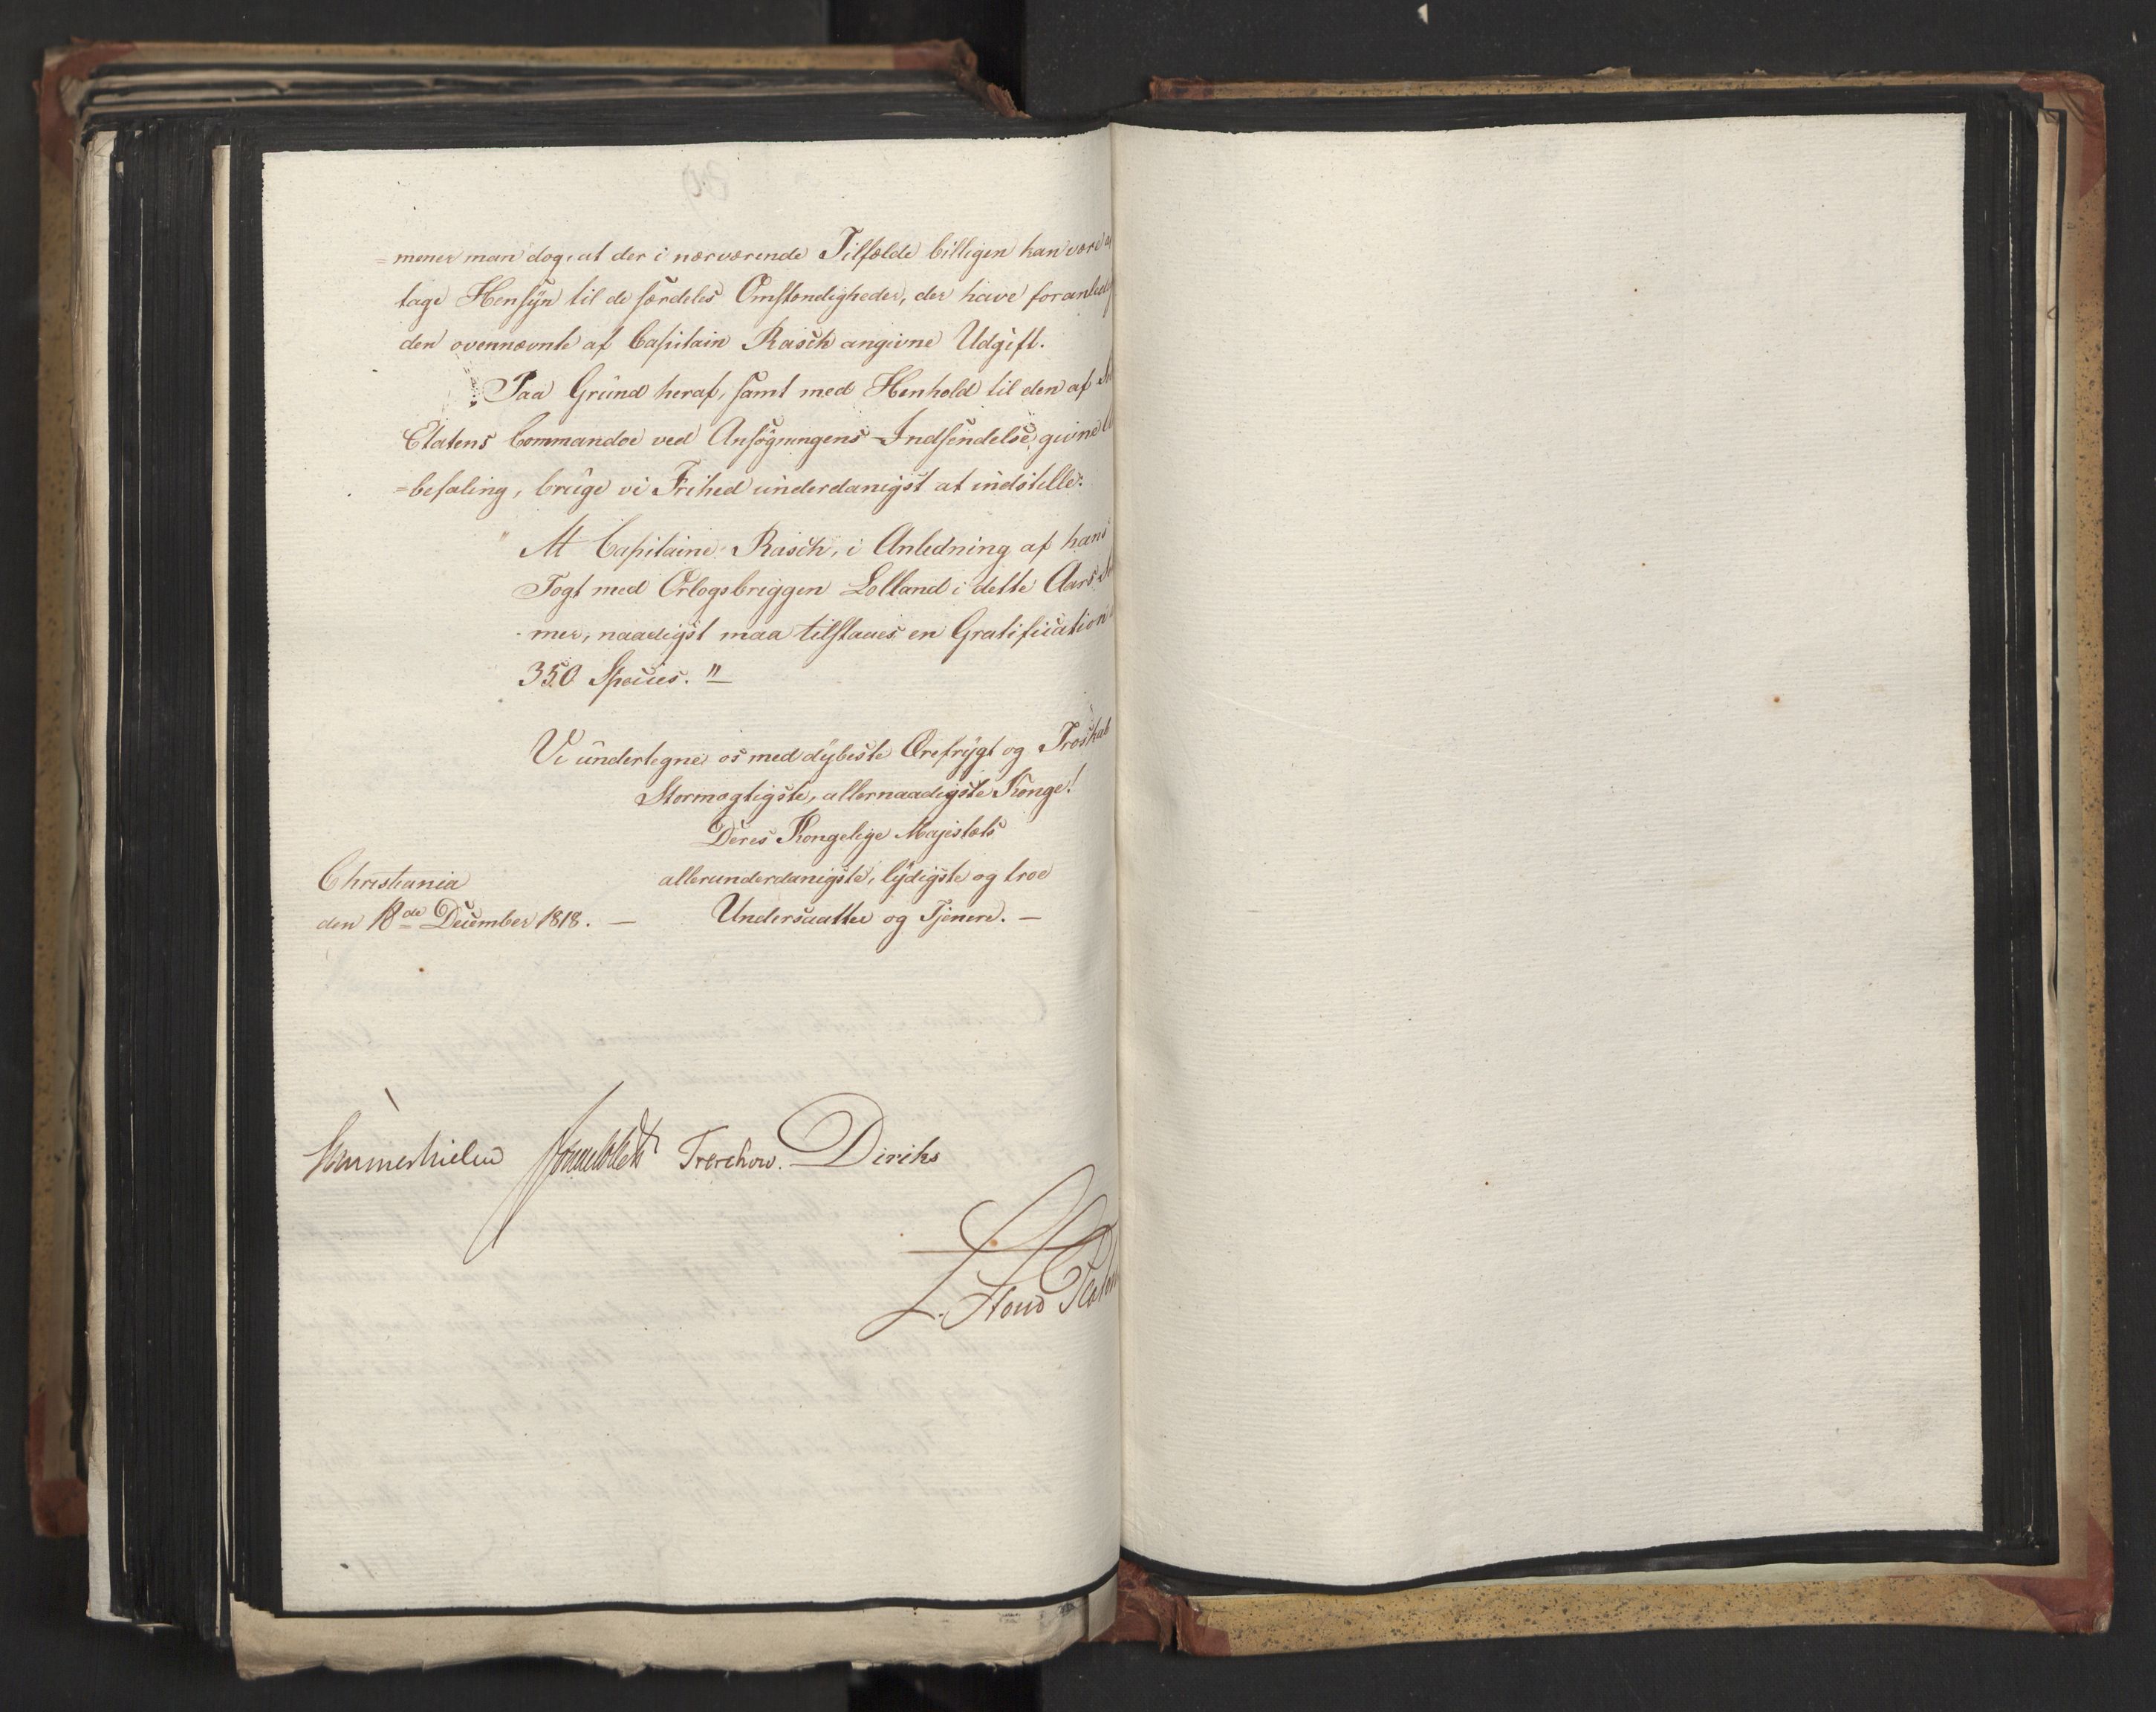 =mener man dog, at der i nærværende Tilfælde billigen kan være
tage Hensyn til de særdeles Omstændigheder, der have foranledig
den ovennævnte af Capitain Rasch angivne Udgift.
Paa Grund heraf, samt med Henhold til den af
Etatens Commandoe ved Ansøgningens Indsendelse givne
=befaling, bruge vi Frihed underdanigst at indstille:
" At Capitaine Rasch, i Anledning af hans
Togt med Orlogsbriggen Lolland i dette Aars
mer, naadigst maa tilstaaes en Gratification
350 Species. "
Vi undertegne os med dybeste Ærefrygt og Troskab
Stormægtigste, allernaadigste Konge!
Deres Kongelige Majestæts
allerunderdanigste, lydigste og troe
Undersaatter og Tjenere. —
Christiania
den 18de December 1818. —
Sommerhielm Treschow. Diriks
L. Stoud Platou